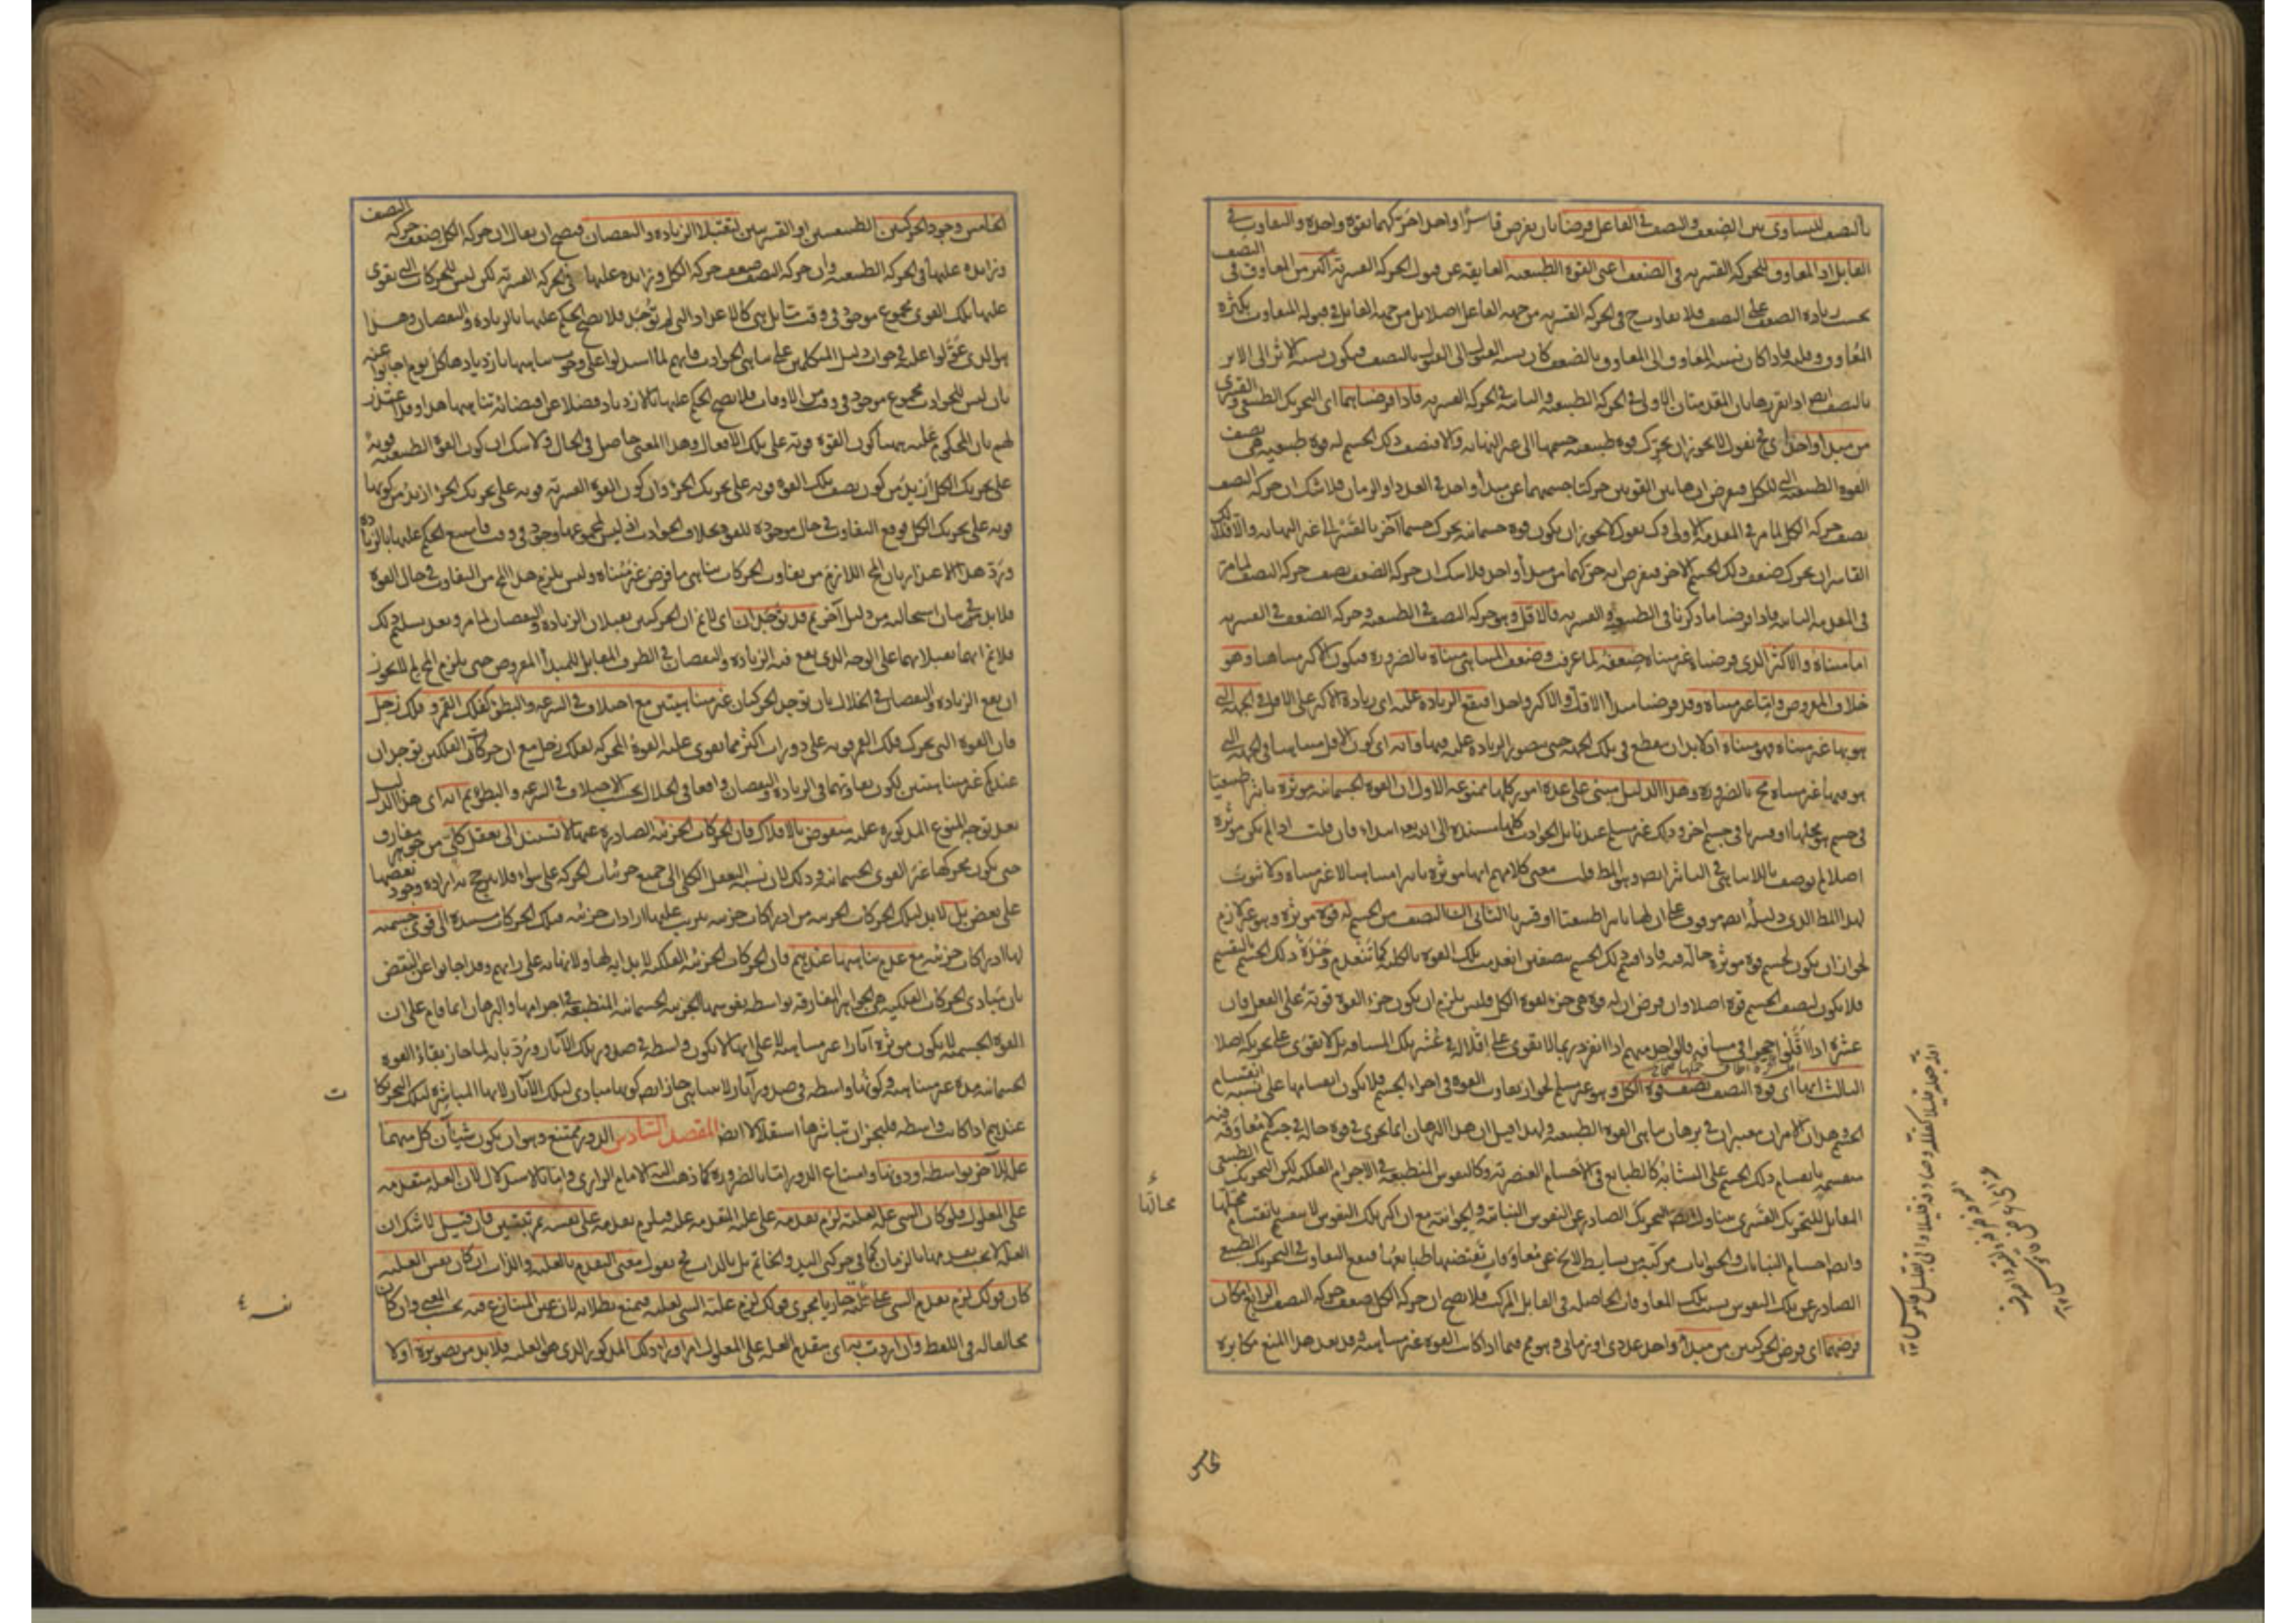 بالنصف للتساوى بين الضعف والنصف فى الفاعل فرضنا بان يفرض قاسرا واحدا حركهما بقوة واحدة والتفاوت فى
القابل اذ المعاوق للحركة القسرية فى الضعف اعنى القوة الطبيعية العايقة عن قبول الحركة القسرية اكثر من المعاوق فى النصف
بحسب زيادة الضعف على النصف فلا تفاوت ح فى الحركة القسرية من جهة الفاعل اصلا بل من جهة القابل فى قبوله المتفاوت بكثرة
المعاوق وقلته فاذا كان نسبة المعاوق الى المعاوق بالضعف كان نسبة القبول الى القبول بالنصف فيكون نسبة الاثر الى الاثر
بالنصف ايضا اذا تقرر هاتان المقدمتان الاولى فى الحركة الطبيعية والثانية فى الحركة القسرية فاذا فرضناهما اى التحريك الطبيعى والقسرى
من مبدأ واحد اى ح نقول لا يجوز ان يحرك قوة طبيعية جسمها الى غير النهاية والا فنصف ذلك الجسم له قوة طبيعية هى نصف
القوة الطبيعية التى للكل فنفرض ان هاتين القوتين حركتا جسميهما عن مبدأ واحد فى العدد او الزمان فلا شك ان حركة النصف
نصف حركة الكل لما مر فى المقدمة الاولى وكذلك نقول لا يجوز ان يكون قوة جسمانية يحرك جسما آخر بالقسر الى غير النهاية والا فذلك
القاسر ان يحرك ضعف ذلك الجسم الآخر فنفرض انه حركهما من مبدأ واحد فلا شك ان حركة الضعف نصف حركة النصف لما مر
فى المقدمة الثانية فاذا فرضنا ما ذكرنا فى الطبيعية والقسرية فالاقل وهو حركة النصف فى الطبيعية وحركة الضعف فى القسرية
اما متناه والاكثر الذى فرضناه غير متناه ضعفه لما عرفت وضعف المتناهى متناه بالضرورة فيكون الاكثر متناهيا وهو
خلاف المفروض واما غير متناه وقد فرضنا مبدأ الاقل والاكثر واحدا فيقع الزيادة عليه اى زيادة الاكثر على الاقل فى الجهة التى
هو بها غير متناه فهو متناه اذ لا بد ان ينقطع فى تلك الجهة حتى يتصور الزيادة عليه فيها وانه اى كون الاقل متناهيا فى الجهة التى
هو فيها غير متناه مح بالضرورة وهذا الدليل مبنى على عدة امور كلها ممنوعة الاول ان القوة الجسمانية موثرة تاثيرا طبيعيا
فى جسم هو محلها او قسريا فى جسم آخر وذلك غير مسلم عند قايل الحوادث كلها مستندة الى الله تعالى ابتداء فان قلت اذا لم يكن موثرة
اصلا لم يوصف باللاتناهى فى التاثير ايضا وهو المط قلت معنى كلامهم انها موثرة تاثيرا متناهيا لا غير متناه ولا ثبوت
لهذا المط الذى دليله ايضا موقوف على ان لها تاثيرا طبيعيا او قسريا الثانى ان النصف من الجسم له قوة موثرة وهو غير لازم
لجواز ان يكون لجسم قوة موثرة حالة فيه فاذا قسم ذلك الجسم نصفين انعدمت تلك القوة بالكلية كما تنعدم وحدة ذلك الجسم بالتقسيم
فلا يكون لنصف الجسم قوة اصلا وان فرض ان له قوة هى جزء لقوة الكل فليس يلزم ان يكون جزء القوة قوية على الفعل فان
عشرة اذا اقلوا حجرا فى مسافة فالواحد منهم اذا انفرد ربما لا تقوى على اقلاله فى عشر تلك المسافة بل لا تقوى على تحريكه اصلا
الثالث انها اى قوة النصف نصف قوة الكل وهو غير مسلم لجواز تفاوت القوة فى اجزاء الجسم فلا يكون انقسامها على نسبة انقسام
الجسم وهذان الامران معتبران فى برهان تناهى القوة الطبيعية ولهذا قيل ان هذا البرهان انما يجرى فى قوة حالة فى جسم لا معاوقة فيه
منقسمة بانقسام ذلك الجسم على التشابه كالطبايع فى الاجسام العنصرية وكالنفوس المنطبعة فى الاجرام الفلكية لكن التحريك الطبيعى
المقابل للتحريك القسرى يتناول ايضا التحريك الصادر عن النفوس النباتية والحيوانية مع ان اكثر تلك النفوس لا ينقسم بانقسام محلها
وايضا اجسام النباتات والحيوانات مركبة من بسايط لا يخ عن معاوقات تقتضيها طبايعها فيقع التفاوت فى التحريك الطبيعى
الصادر عن تلك النفوس بسبب تلك المعاوقات الحاصلة فى القابل المركب فلا يصح ان حركة الكل ضعف حركة النصف الرابع مكان
فرضهما اى فرض الحركتين من مبدأ واحد عددى او زمانى وهو مم فيما اذا كانت القوة غير متناهية وقد يعد هذا المنع مكابرة
الخامس
الخامس وجود الحركتين الطبيعيتين او القسريتين لتقبلا الزيادة والنقصان فيصح ان يقال ان حركة الكل ضعف حركة النصف
وزايدة عليها فى الحركة الطبيعية وان حركة النصف ضعف حركة الكل وزايدة عليها فى الحركة القسرية لكن ليس للحركات التى تقوى
عليها تلك القوى مجموع موجود فى وقت ما بل هى كالاعداد التى لم توجد فلا يصح الحكم عليها بالزيادة والنقصان وهذا
هو الذى عولوا عليه فى جواب دليل المتكلمين على تناهى الحوادث فانهم لما استدلوا على وجوب تناهيها بازديادها كل يوم اجابوا عنه
بان ليس للحوادث مجموع موجود فى وقت من الاوقات فلا يصح الحكم عليها بالازدياد فضلا عن اقتضائه تناهيها هذا وقد اعتذر
لهم بان المحكوم عليه ههنا كون القوة قوية على تلك الافعال وهذا المعنى حاصل فى الحال ولا شك ان كون القوة الطبيعية قوية
على تحريك الكل ازيد من كون نصف تلك القوة قوية على تحريك الجزء وان كون القوة القسرية قوية على تحريك الجزء ازيد من كونها
قوية على تحريك الكل فوقع التفاوت فى حال موجودة للقوة بخلاف الحوادث اذ ليس لمجموعها وجود فى وقت فامتنع الحكم عليها بالزيادة
ورد هذا الاعتذار بان المح اللازم من تفاوت الحركات تناهى ما فرض غير متناه وليس يلزم هذا المح من التفاوت فى حال القوة
فلا بد فى بيان استحالته من دليل آخر ثم قد توجدان اى لانم ان الحركتين يقبلان الزيادة والنقصان لما مر وبعد تسليم ذلك
فلانم انهما تقبلانهما على الوجه الذى يقع فيه الزيادة والنقصان فى الطرف المقابل للمبدأ المفروض حتى يلزم المح لم لا يجوز
ان يقع الزيادة والنقصان فى الخلال بان توجد الحركتان غير متناهيتين مع اختلاف فى السرعة والبطؤ كفلك القمر وفلك زحل
فان القوة التى تحرك فلك القمر قوية على دورات اكثر مما تقوى عليه القوة المحركة لفلك زحل مع ان حركات الفلكين توجدان
عندكم غير متناهيتين لكون تفاوتهما فى الزيادة والنقصان واقعا فى الخلال بحسب الاختلاف فى السرعة والبطؤ ثم انه اى هذا الدليل
بعد توجه المنوع المذكورة عليه منقوض بالافلاك فان الحركات الجزئية الصادرة عنها لا تستند الى تعقل كلى من جوهر مفارق
حتى يكون محركها غير القوى الجسمانية وذلك لان نسبة التعقل الكلى الى جميع جزئيات الحركة على سواء فلا يترجح به ارادة وجود بعضها
على بعض بل لا بد لتلك الحركات الجزئية من ادراكات جزئية يترتب عليها ارادات جزئية فتلك الحركات مستندة الى قوى جسمية
لها ادراكات جزئية مع عدم تناهيها عندهم فان الحركات الجزئية الفلكية لا بداية لها ولا نهاية على رايهم وقد اجابوا عن النقض
بان مبادى الحركات الفلكية هى الجواهر المفارقة بواسطة نفوسها الجزئية الجسمانية المنطبعة فى اجرامها والبرهان انما قام على ان
القوة الجسمية لا يكون موثرة آثارا غير متناهية لا على انها لا يكون واسطة فى صدور تلك الآثار ورد بانه لما جاز بقاء القوة
الجسمانية مدة غير متناهية وكونها واسطة فى صدور آثار لا تتناهى جاز ايضا كونها مبادى لتلك الآثار لانها المباشرة لتلك التحريكات
عندهم اذا كانت واسطة فليجز ان تباشرها استقلالا ايضا المقصد السادس الدور ممتنع وهو ان يكون شيئان كل منهما
علة للآخر بواسطة او دونها وامتناع الدور اما بالضرورة كما ذهب اليه الامام الرازى واما بالاستدلال لان العلة متقدمة
على المعلول فلو كان الشى علة لعلته لزم تقدمه على علته المتقدمة عليه فيلزم تقدمه على نفسه بمرتبتين فان قيل لا شك ان
العلة لا يجب تقدمها بالزمان كما فى حركتى اليد والخاتم بل بالذات فح نقول معنى التقدم بالعلية والذات ان كان نفس العلية
كان قولك لزم تقدم الشى على علته جاريا مجرى قولك لزم علية الشى لعلته فيمنع بطلانه لانه عين المتنازع فيه بحسب المعنى وان كان
مخالفا له فى اللفظ وان اردت به اى بتقدم العلة على المعلول امرا وراء ذلك المذكور الذى هو العلية فلا بد من تصويره اولا